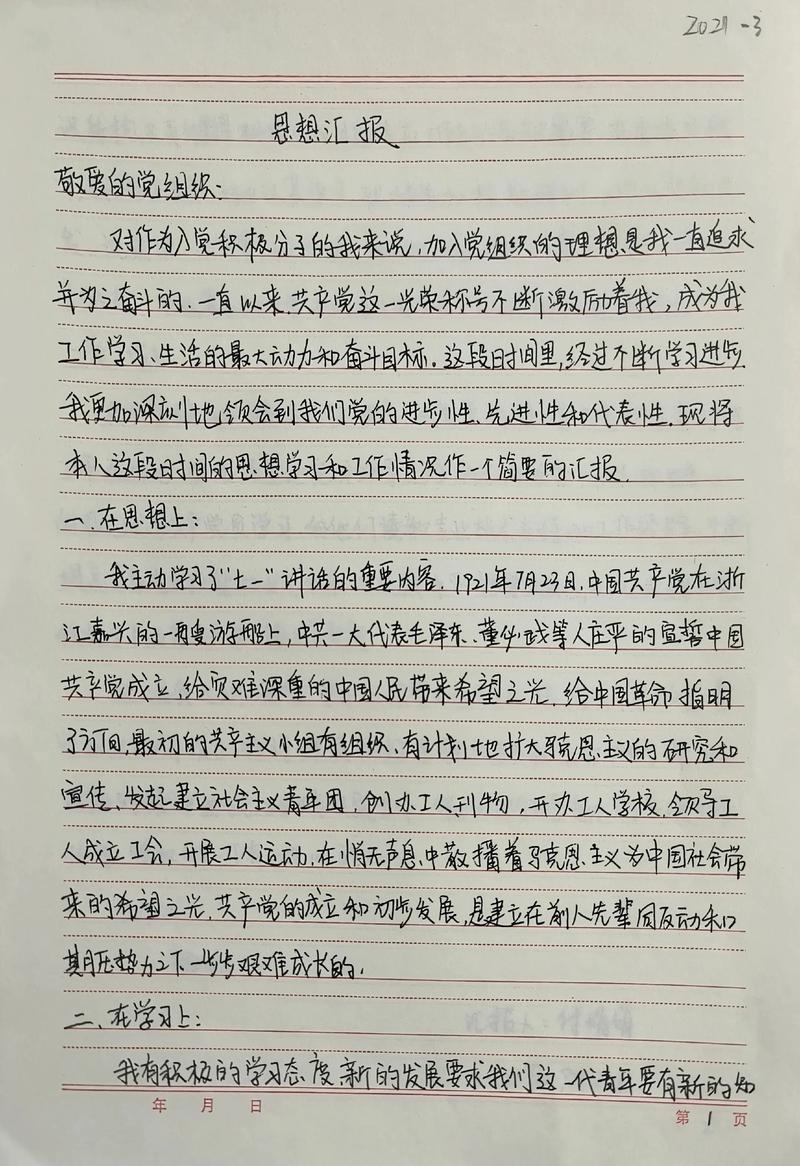 2021-3
思想汇报
敬爱的党组织：
对作为入党积极分子的我来说，加入党组织的理想是我一直追求
并为之奋斗的．一直以来．共产党这一光荣称号不断激励着我，成为我
工作学习、生活的最大动力和奋斗目标．这段时间里，经过不断学习进步．
我更加深刻地领会到我们党的进步性、先进性和代表性．现将
本人这段时间的思想学习和工作情况作一个简要的汇报．
一．在思想上：
我主动学习了“七一”讲话的重要内容．1921年7月23日．中国共产党在浙
江嘉兴的一艘游船上，中共一大代表毛泽东、董必武等人庄严的宣誓中国
共产党成立．给灾难深重的中国人民带来希望之光．给中国革命指明
了方向，最初的共产主义小组有组织、有计划地扩大马克思主义的研究和
宣传、发起建立社会主义青年团，创办工人刊物，开办工人学校．领导工
人成立工会，开展工人运动．在悄无声息中散播着马克思主义为中国社会带
来的希望之光．共产党的成立和初步发展，是建立在前人先辈同反动和
其压势力之下一步步艰难成长的．
二、在学习上：
我有积极的学习态度．新的发展要求我们这一代青年要有新的知
年 月 日
第 1 页